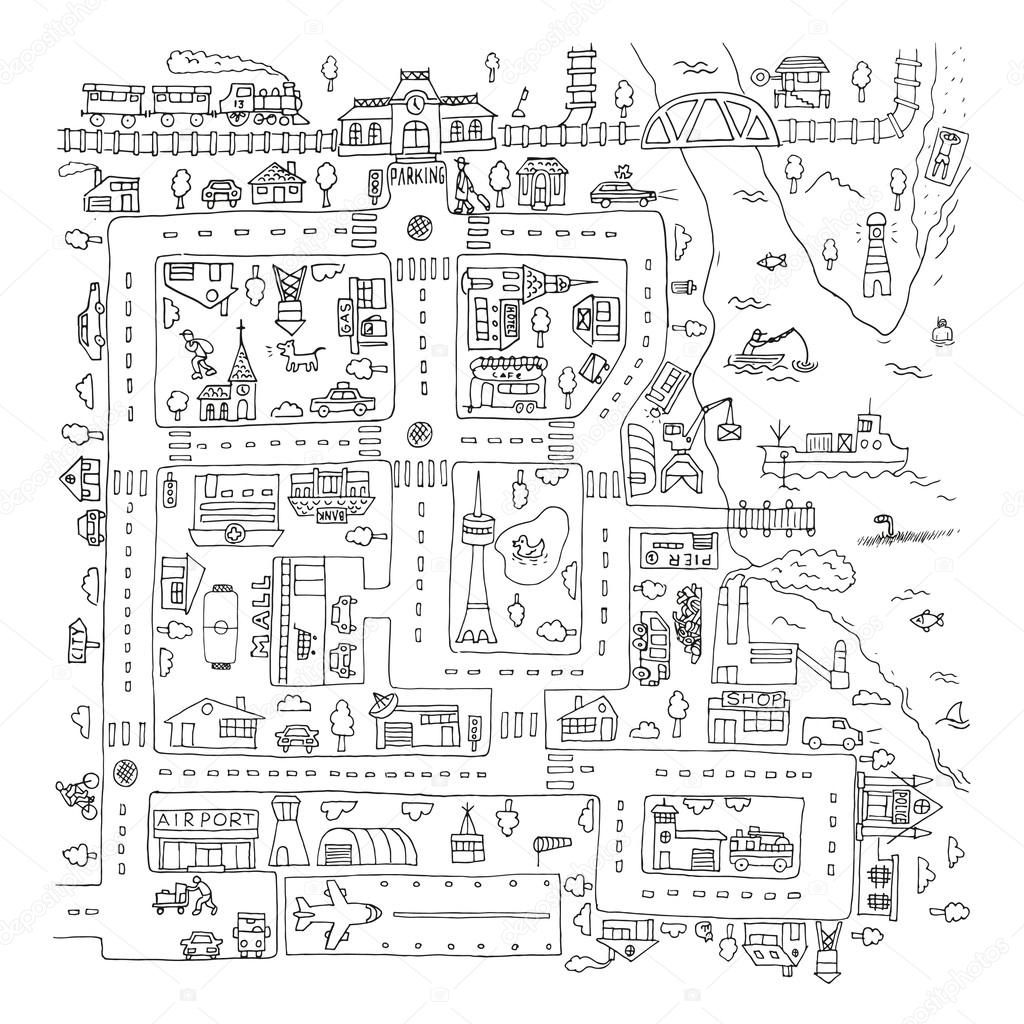 13
PARKING
GAS
HOTEL
CAFE
BANK
MALL
PIER
1
CITY
SHOP
AIRPORT
POLICE
depositphotos